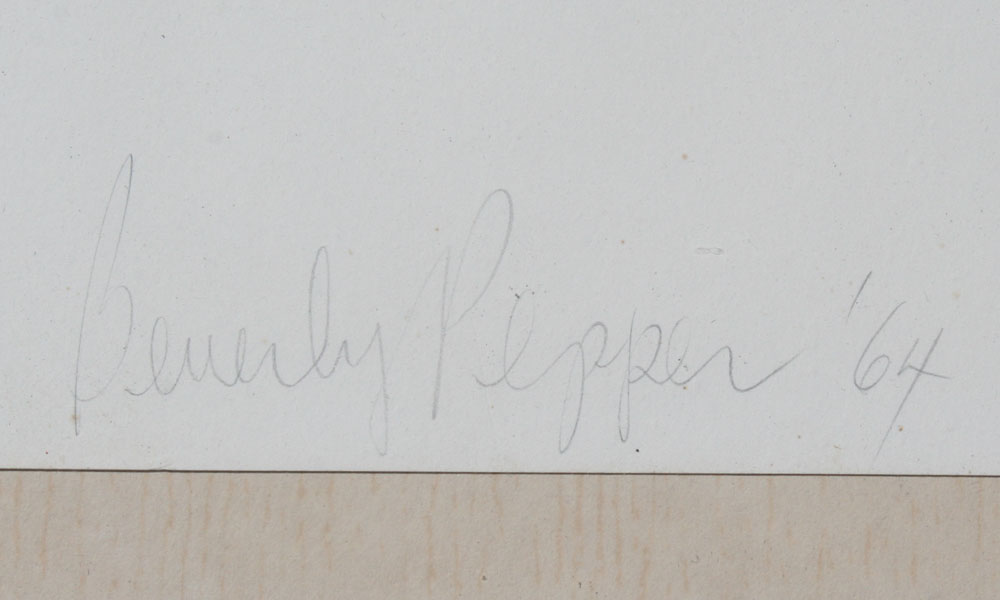 Beverly Pepper '64